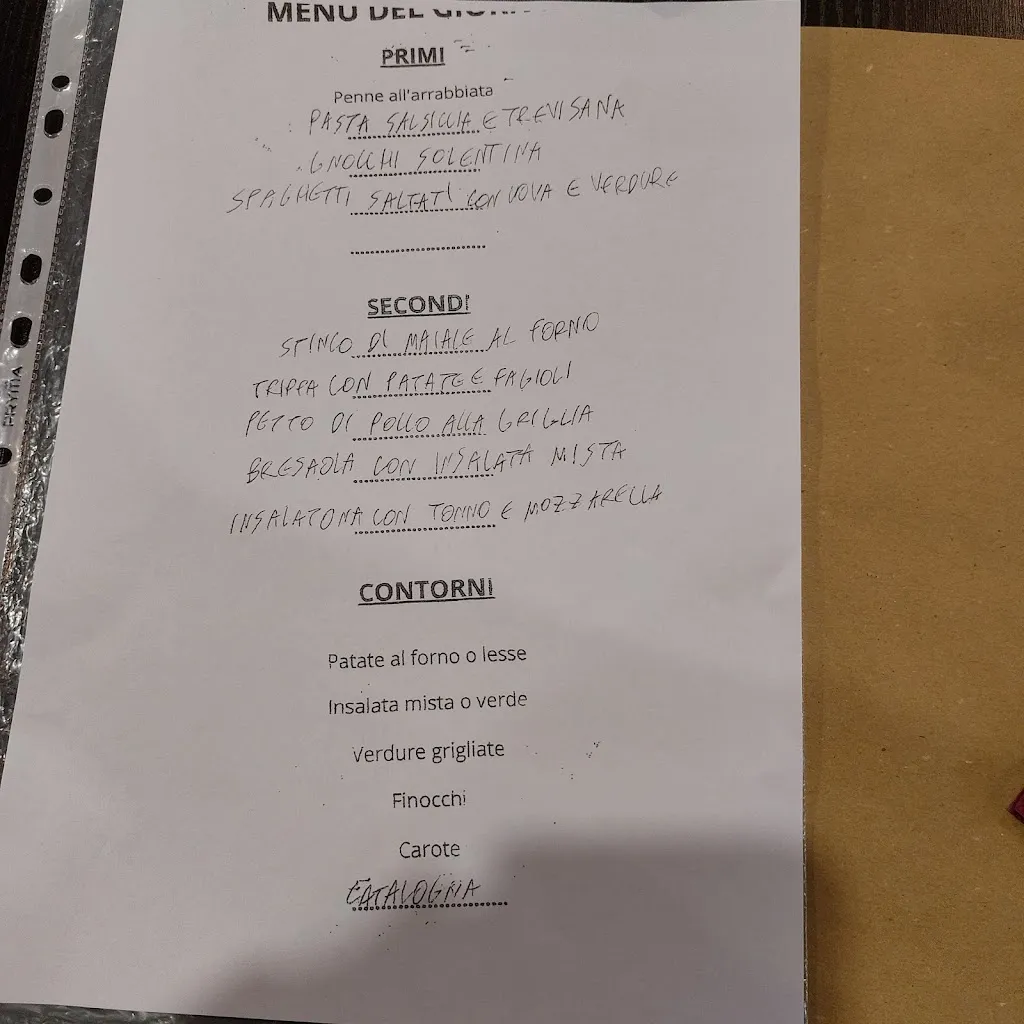 MENU DEL GIORN
PRIMI
Penne all'arrabbiata
PASTA SALSICCIA E TREVISANA
GNOCCHI SOLENTINA
SPAGHETTI SALTATI CON UOVA E VERDURE
SECONDI
STINCO DI MAIALE AL FORNO
TRIPPA CON PATATE E FAGIOLI
PETTO DI POLLO ALLA GRIGLIA
BRESAOLA CON INSALATA MISTA
INSALATONA CON TONNO E MOZZARELLA
CONTORNI
Patate al forno o lesse
Insalata mista o verde
Verdure grigliate
Finocchi
Carote
CATALOGNA